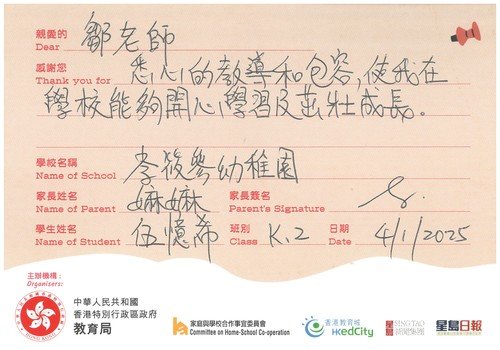 親愛的 鄒老師
Dear
感謝您 悉心的教導和包容,使我在
Thank you for
學校能夠開心學習及茁壯成長。
學校名稱 李筱參幼稚園
Name of School
家長姓名 嫲嫲 家長簽名
Name of Parent Parent's Signature
學生姓名 伍憶希 班別 K.2 日期 4/1/2025
Name of Student Class Date
主辦機構:
Organisers:
中華人民共和國
香港特別行政區政府
教育局
家庭與學校合作事宜委員會
Committee on Home-School Co-operation
香港教育城
HKedCity
星島 SINGTAO
新聞集團
星島日報